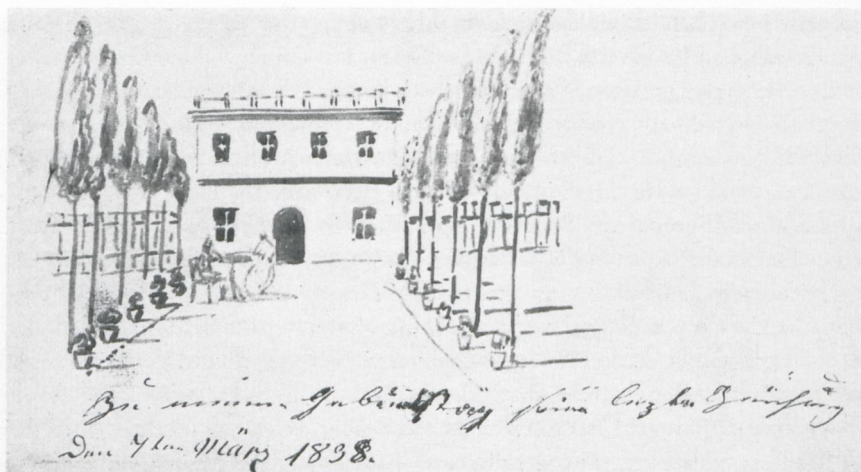 Zu meinem Geburtstag seine letzte Zeichnung
Den 7ten März 1838.